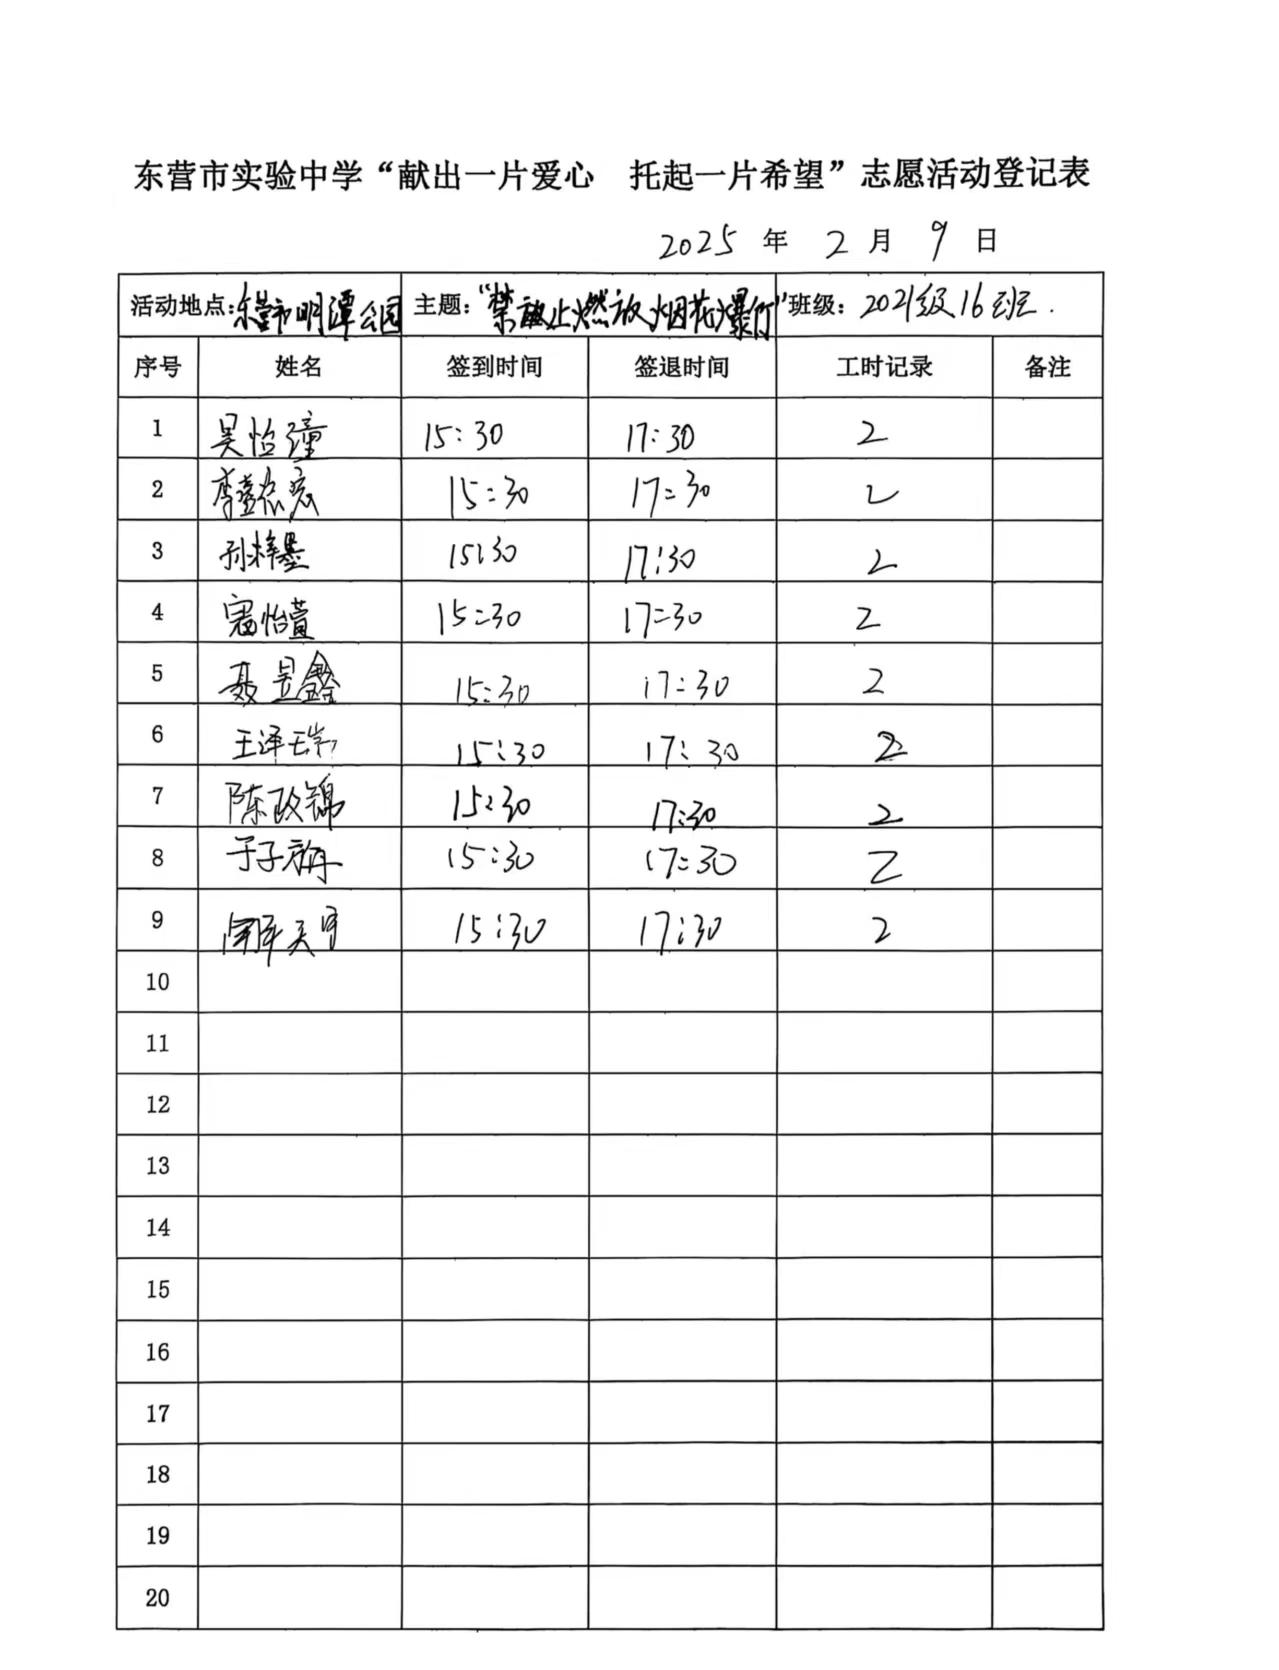 东营市实验中学“献出一片爱心 托起一片希望”志愿活动登记表
2025 年 2 月 9 日
活动地点:东营市明潭公园 主题:“禁止燃放烟花爆竹” 班级: 2021级16班.
序号 姓名 签到时间 签退时间 工时记录 备注
1 吴怡瞳 15:30 17:30 2
2 15:30 17:30 2
3 孙梓墨 15:30 17:30 2
4 寇怡萱 15:30 17:30 2
5 聂昱鑫 15:30 17:30 2
6 王泽瑞 15:30 17:30 2
7 陈政锦 15:30 17:30 2
8 于子 15:30 17:30 2
9 15:30 17:30 2
10
11
12
13
14
15
16
17
18
19
20